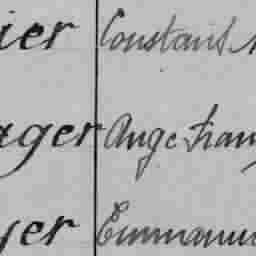 ier Constant
ager Ange Fran
yer Emmanu